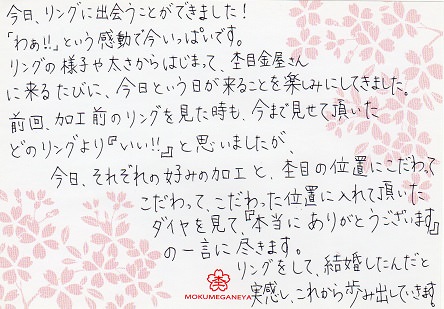 今日、リングに出会うことができました!
「わぁ!!」という感動で今いっぱいです。
リングの様子や太さからはじまって、杢目金屋さん
に来るたびに、今日という日が来ることを楽しみにしてきました。
前回、加工前のリングを見た時も、今まで見せて頂いた
どのリングより『いい!!』と思いましたが、
今日、それぞれの好みの加工と、杢目の位置にこだわって
こだわって、こだわった位置に入れて頂いた
ダイヤを見て、『本当にありがとうございます』
の一言に尽きます。
リングをして、結婚したんだと
実感し、これから歩み出していきます。
MOKUMEGANEYA